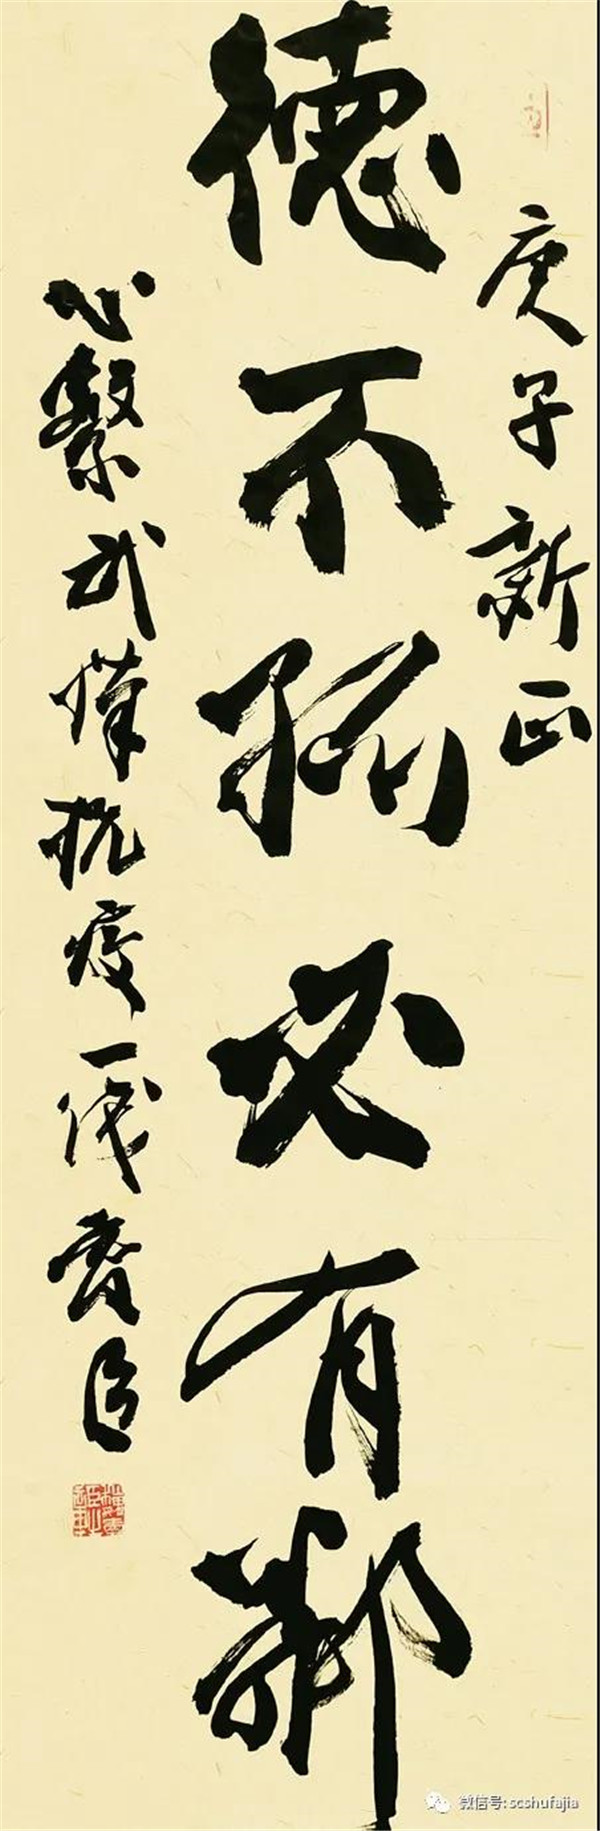 庚子新正
德不孤必有鄰
心繫武漢抗疫一线
微信号: scshufajia